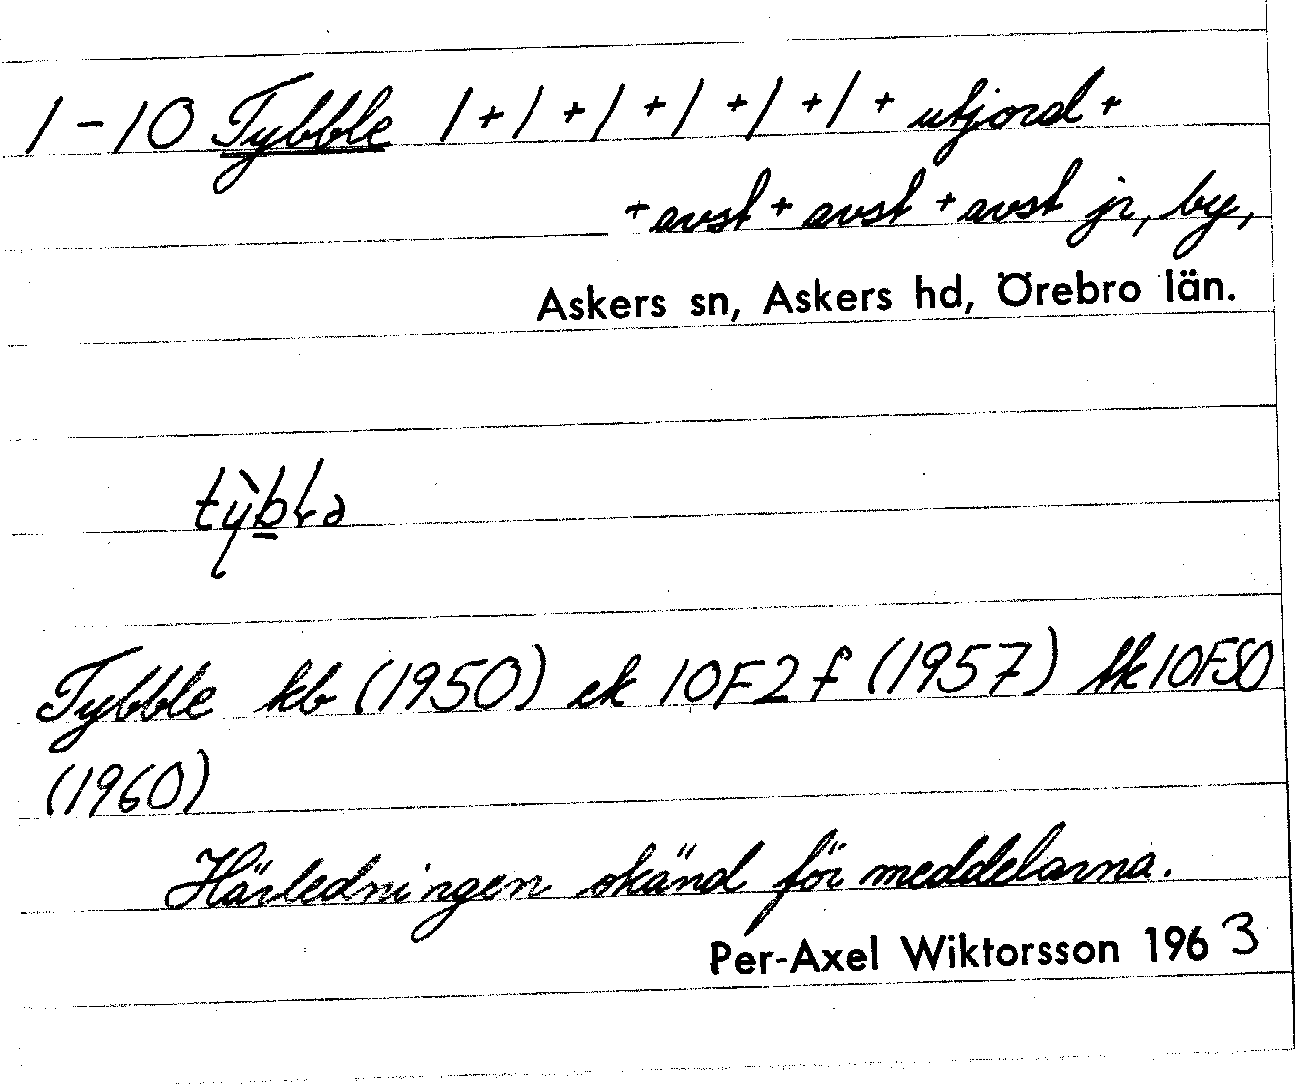 1-10 Tybble 1+1+1+1+1+1+ utjord +
+ avst + avst + avst jr, by,
Askers sn, Askers hd, Örebro län.
Tybble kb (1950) ek 10F2f (1957) tk 10FSO
(1960)
Härledningen okänd för meddelarna.
Per-Axel Wiktorsson 1963